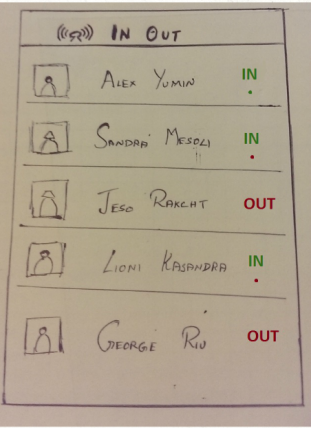 IN OUT
ALEX YUMIN IN
SANDRA MESOLI IN
JESO RAKCHT OUT
LIONI KASANDRA IN
GEORGE RIU OUT